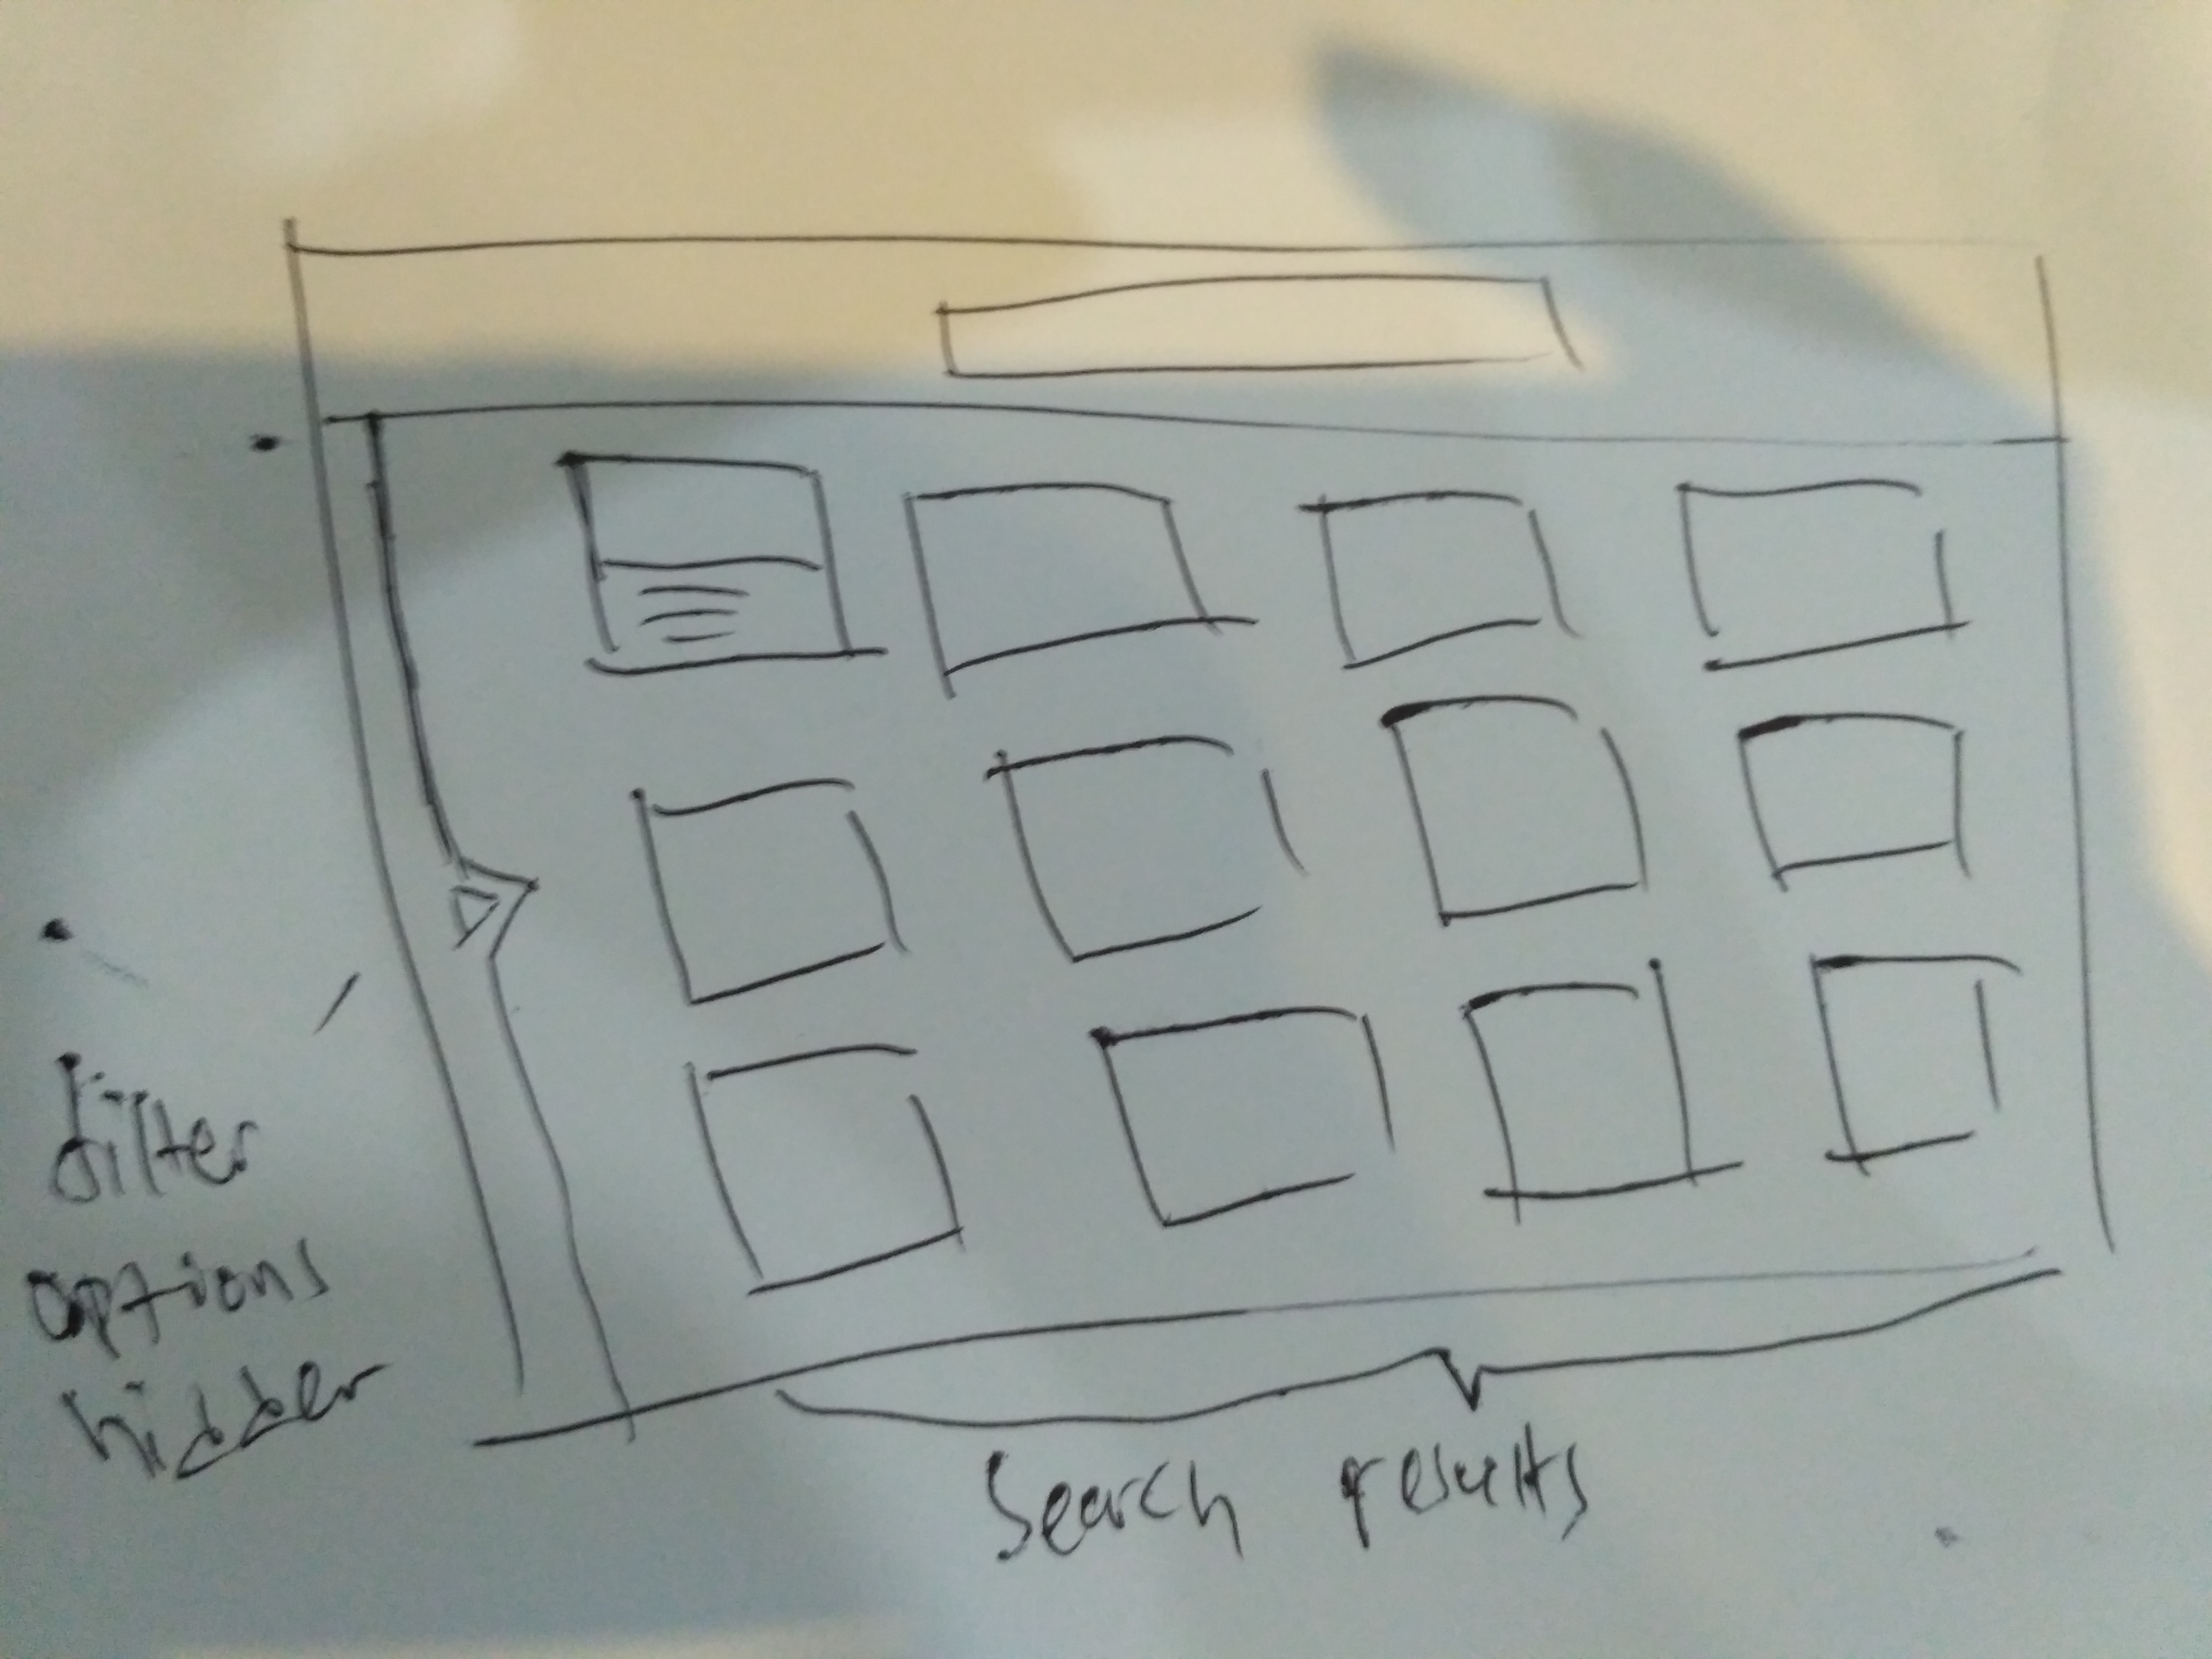 filter
options
hidden
Search results